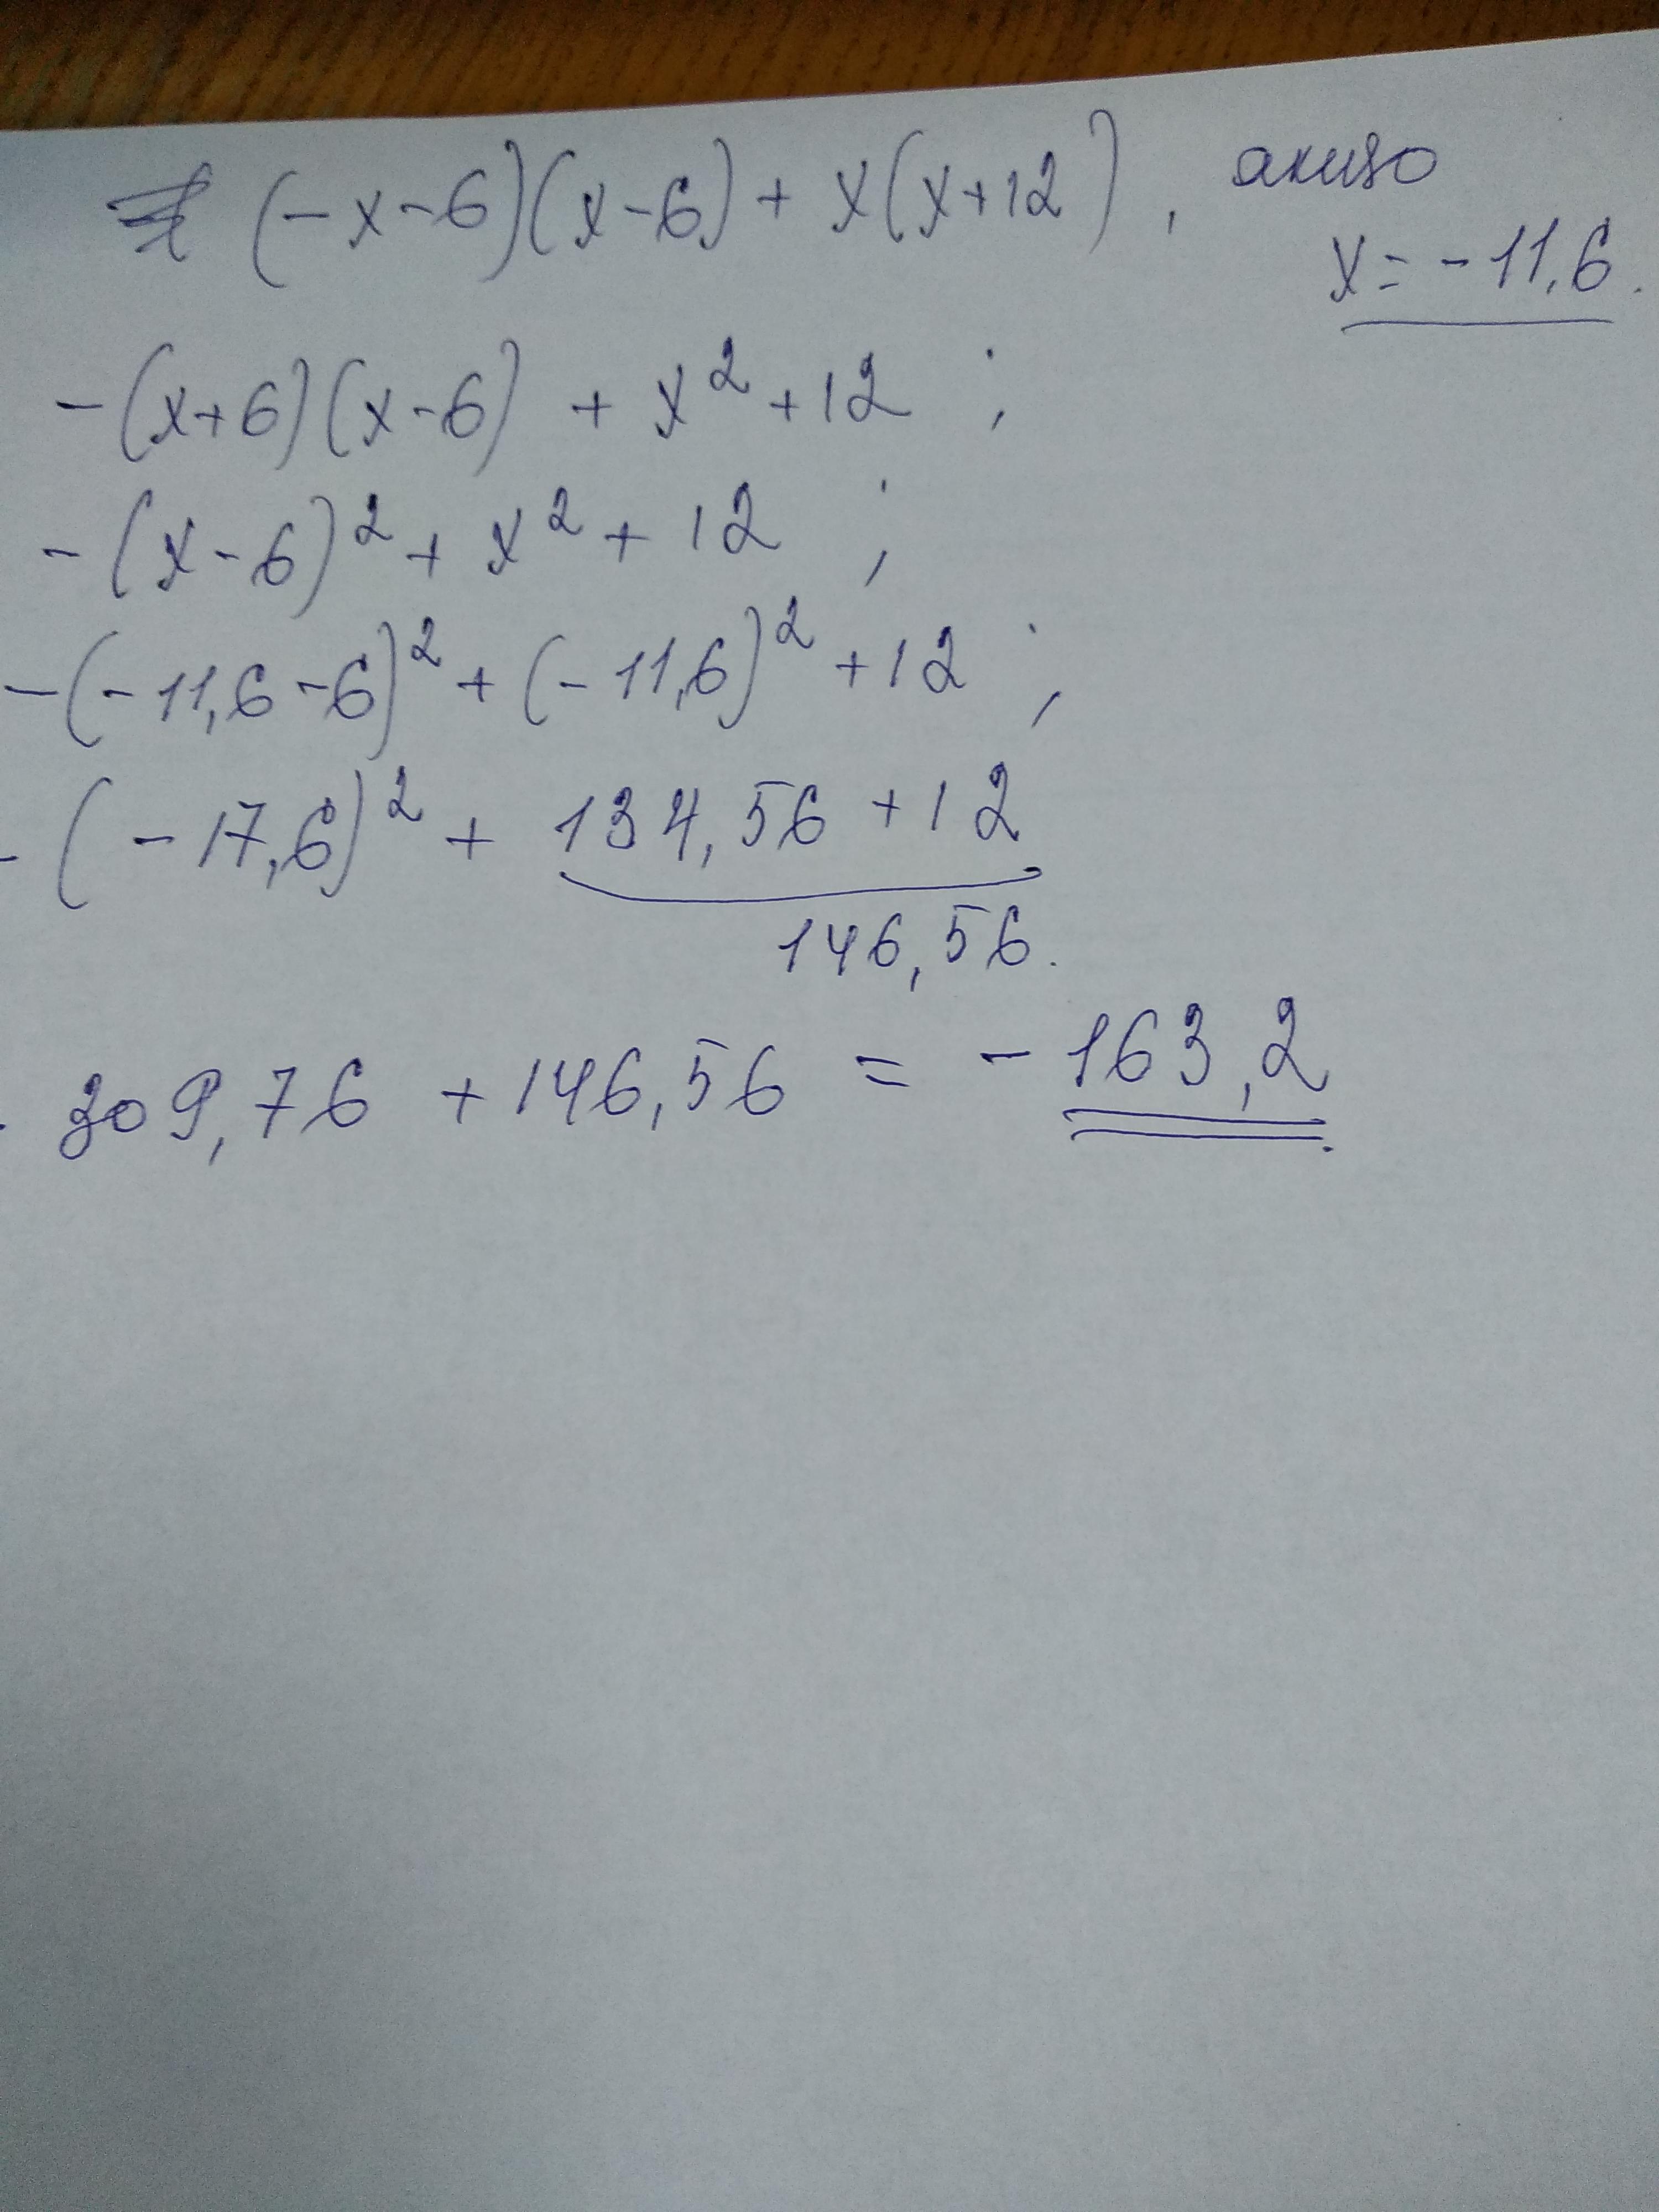 (-x-6)(x-6)+x(x+12), якщо
x=-11,6.
-(x+6)(x-6)+x²+12;
-(x-6)²+x²+12;
-(-11,6-6)²+(-11,6)²+12;
-(-17,6)²+134,56+12
146,56.
-309,76+146,56=-163,2.